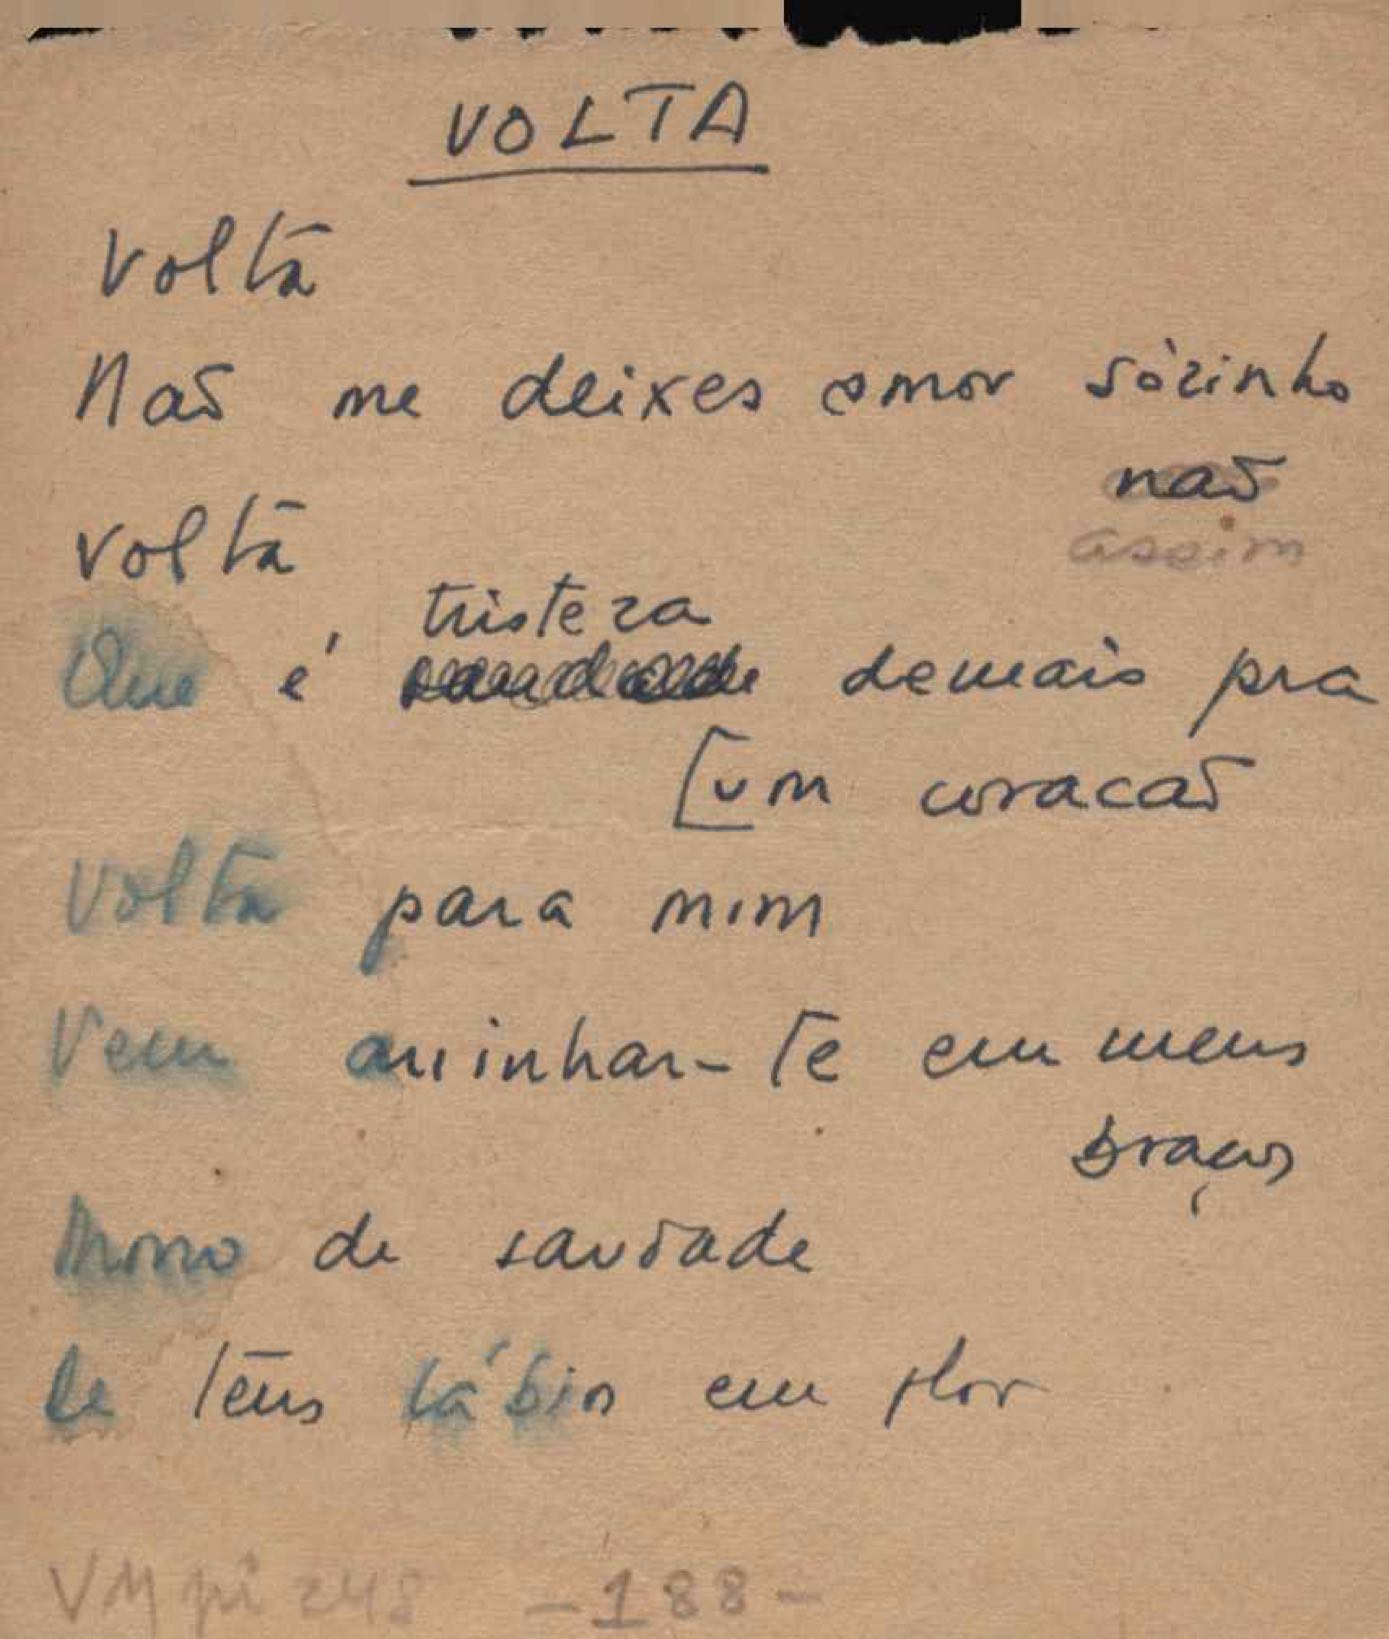 VOLTA
Volta
Não me deixes amor sòzinho
não
assim
Volta
tristeza
Que é saudade demais pra
[um coracão
Volta para mim
Vem aninhar-te em meus
braços
Morro de saudade
De teus lábios em flor
VMpi 248 -188-